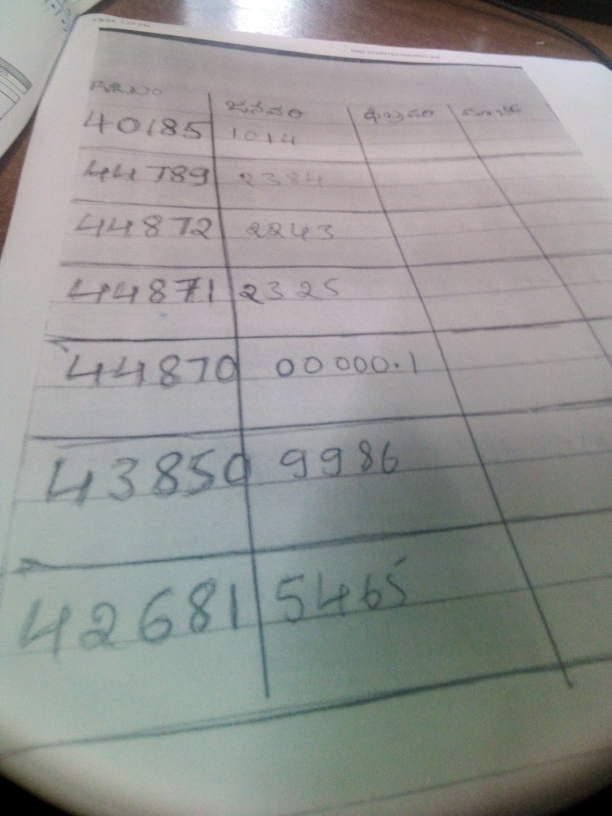 R.R.NO ಜನವರಿ ಫೆಬ್ರವರಿ ಮಾರ್ಚ್
40185 1014
44789 2384
44872 2243
44871 2325
44870 00000.1
43850 9986
42681 5465